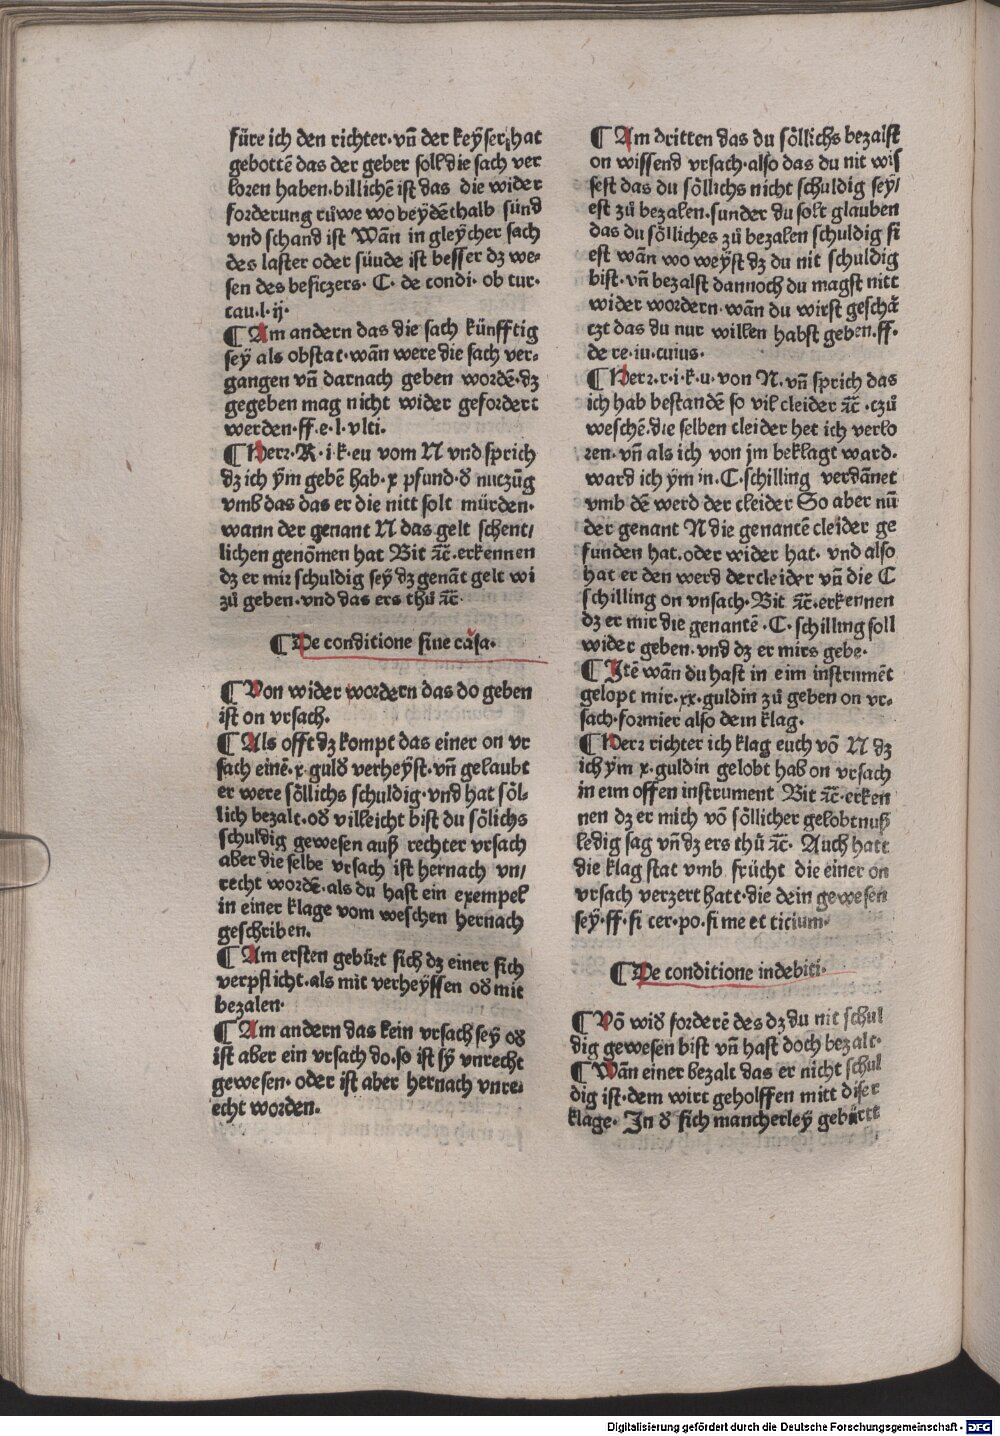 füre ich den richter·vn̄ der keÿser hat
gebottē das der geber soll die sach ver
loren haben·billichē ist das die wider
forderung růwe wo beydēthalb sünd
vnd schand ist Wān in gleÿcher sach
des laster oder süude ist besser dz we⸗
sen des besiczers· C· de condi· ob tur·
cau·l·ij·
¶ Am andern das die sach künfftig
seÿ als obstat·wān were die sach ver⸗
gangen vn̄ darnach geben wordē·dz
gegeben mag nicht wider gefordert
werden·ff·e·l·vlti·
¶ Herr·R·i·k·eu vom N vnd sprich
dz ich ÿm gebē hab·x pfund·ꝺ nuczūg
vmb das das er die nitt solt mürden·
wann der genant N das gelt schent/
lichen genōmen hat Bit ⁊c̄·erkennen
dz er mir schuldig seÿ dz genāt gelt wi
zů geben·vnd das ers thů ⁊c̄·
¶ De conditione sine cāsa·
¶ Von wider wordern das do geben
ist on vrsach·
¶ Als offt dz kompt das einer on vr
sach einē·x·gulꝺ verheÿst·vn̄ gelaubt
er were söllichs schuldig·vnd hat söl⸗
lich bezalt·oꝺ villeicht bist du sölichs
schuldig gewesen auß rechter vrsach
aber die selbe vrsach ist hernach vn/
recht wordē·als du hast ein exempel
in einer klage vom weschen hernach
geschriben.
¶ Am ersten gebürt sich dz einer sich
verpflicht·als mit verheÿssen oꝺ mit
bezalen·
¶ Am andern das kein vrsach seÿ oꝺ
ist aber ein vrsach do·so ist sÿ vnrecht
gewesen· oder ist aber hernach vnre⸗
echt worden.
¶ Am dritten das du söllichs bezalst
on wissend vrsach·also das du nit wis
sest das du söllichs nicht schuldig seÿ/
est zů bezalen·sunder du solt glauben
das du sölliches zů bezalen schuldig si
est wān wo weÿst dz du nit schuldig
bist·vn̄ bezalst dannoch du magst nitt
wider wordern·wān du wirst geschä
czt das du nur willen habst geben·ff·
de re·iu·cuius·
¶ Herr·r·i·k·u·von N·vn̄ sprich das
ich hab bestandē so vil cleider ⁊c̄·czů
weschē·die selben cleider het ich verlo
ren·vn̄ als ich von jm beklagt ward·
ward ich ÿm in·C·schilling verdānet
vmb dē werd der cleider So aber nū
der genant N die genantē cleider ge
funden hat·oder wider hat· vnd also
hat er den werd der cleider vn̄ die C
schilling on vnsach·Bit ⁊c̄·erkennen
dz er mir die genantē·C·schilling soll
wider geben·vnd dz er mirs gebe·
¶ Itē wān du hast in eim instrumēt
gelopt mir·xx·guldin zů geben on vr⸗
sach·formier also dein klag·
¶ Herr richter ich klag euch vō N dz
ich ÿm x·guldin gelobt hab on vrsach
in eim offen instrument Bit ⁊c̄·erken
nen dz er mich vō söllicher gelobtnuß
ledig sag vn̄ dz ers thů ⁊c̄· Auch hatt
die klag stat vmb frücht die einer on
vrsach verzert hatt·die dein gewesen
seÿ·ff·si cer·po·si me et ticium·
¶ De conditione indebiti·
¶ Vō wiꝺ forderē des dz du nit schul
dig gewesen bist vn̄ hast doch bezalt·
¶ Wān einer bezalt das er nicht schul
dig ist·dem wirt geholffen mitt diser
klage· In ꝺ sich mancherleÿ gebürtt
Digitalisierung gefördert durch die Deutsche Forschungsgemeinschaft - DFG